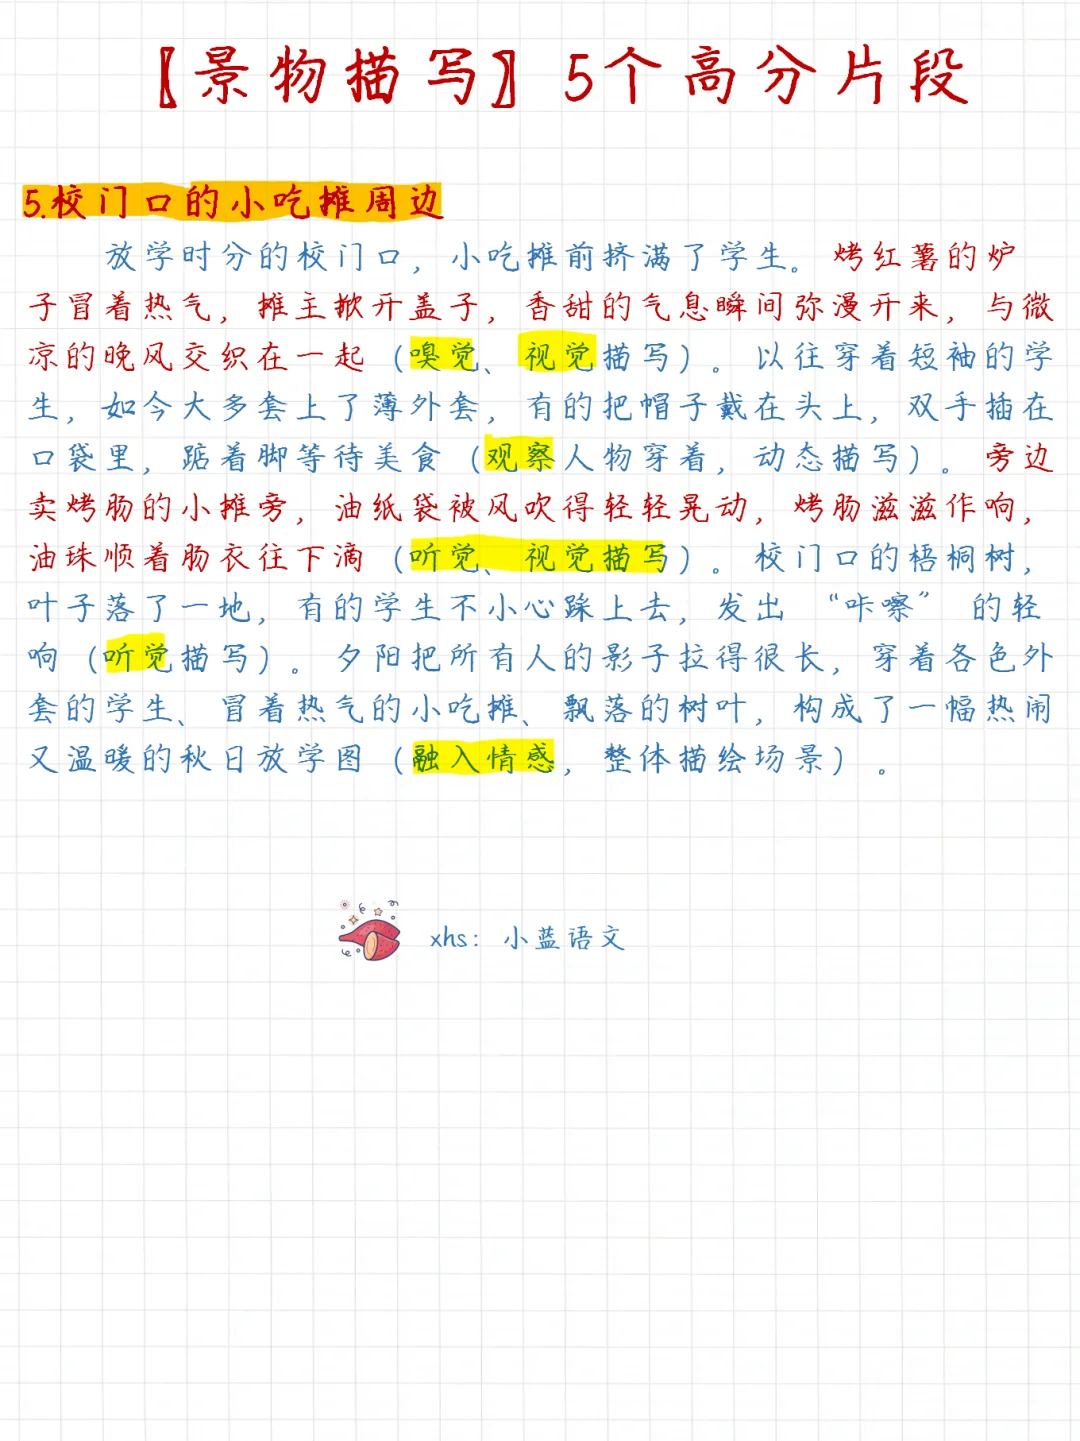 【景物描写】5个高分片段
5.校门口的小吃摊周边
放学时分的校门口，小吃摊前挤满了学生。烤红薯的炉
子冒着热气，摊主掀开盖子，香甜的气息瞬间弥漫开来，与微
凉的晚风交织在一起（嗅觉、视觉描写）。以往穿着短袖的学
生，如今大多套上了薄外套，有的把帽子戴在头上，双手插在
口袋里，踮着脚等待美食（观察人物穿着，动态描写）。旁边
卖烤肠的小摊旁，油纸袋被风吹得轻轻晃动，烤肠滋滋作响，
油珠顺着肠衣往下滴（听觉、视觉描写）。校门口的梧桐树，
叶子落了一地，有的学生不小心踩上去，发出“咔嚓”的轻
响（听觉描写）。夕阳把所有人的影子拉得很长，穿着各色外
套的学生、冒着热气的小吃摊、飘落的树叶，构成了一幅热闹
又温暖的秋日放学图（融入情感，整体描绘场景）。
xhs：小蓝语文